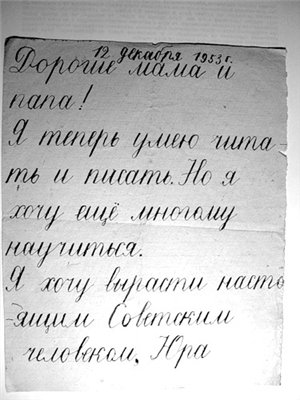 12 декабря 1953 г.
Дорогие мама и
папа!
Я теперь умею чита-
ть и писать. Но я
хочу ещё многому
научиться.
Я хочу вырасти насто
-ящим Советским
человеком. Юра